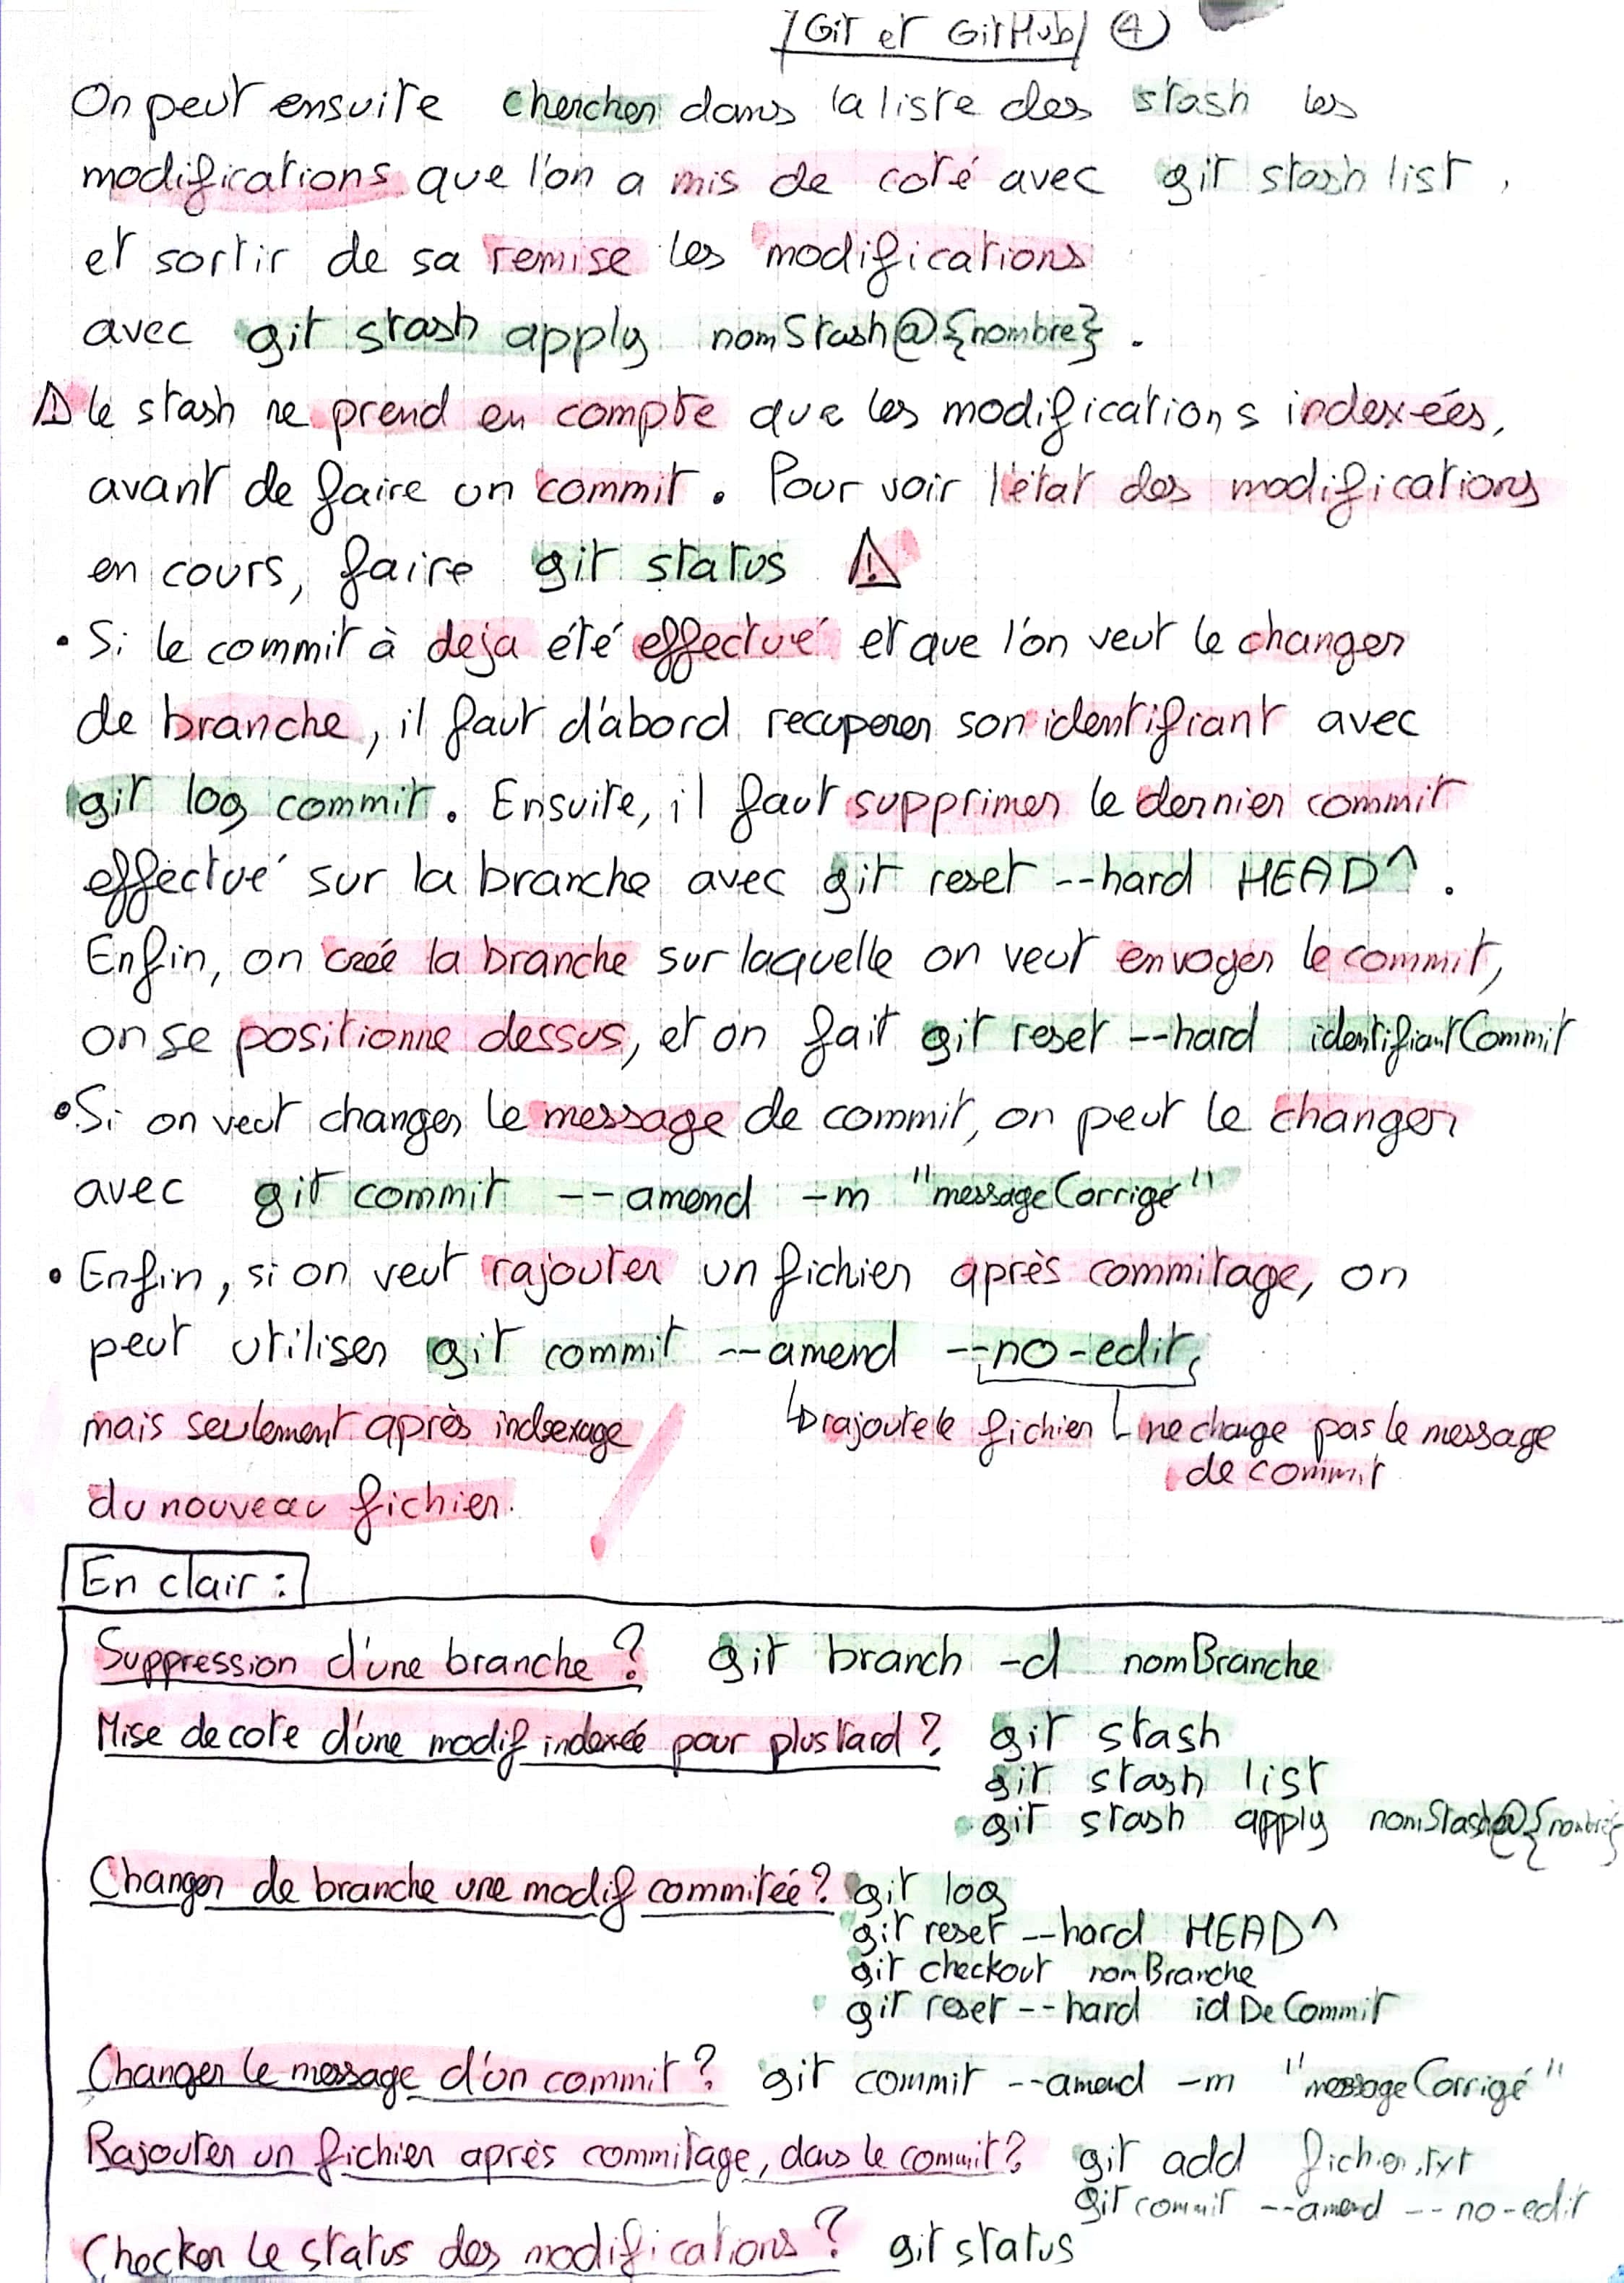 Git et GitHub 4
On peut ensuite chercher dans la liste des stash les
modifications que l'on a mis de coté avec git stash list,
et sortir de sa remise les modifications
avec git stash apply nomStash@{nombre}.
⚠ le stash ne prend en compte que les modifications indexées,
avant de faire un commit. Pour voir l'état des modifications
en cours, faire git status ⚠
• Si le commit à deja été effectué et que l'on veut le changer
de branche, il faut d'abord recuperer son identifiant avec
git log commit. Ensuite, il faut supprimer le dernier commit
effectué sur la branche avec git reset --hard HEAD^.
Enfin, on créé la branche sur laquelle on veut envoyer le commit,
on se positionne dessus, et on fait git reset --hard identifiantCommit
• Si on veut changer le message de commit, on peut le changer
avec git commit --amend -m "messageCorrigé"
• Enfin, si on veut rajouter un fichier après commitage, on
peut utiliser git commit --amend --no-edit,
mais seulement après indexage
du nouveau fichier.
↳ rajoute le fichier
ne change pas le message
de commit
En clair :
Suppression d'une branche ? git branch -d nomBranche
Mise de cote d'une modif indexée pour plus tard ? git stash
git stash list
git stash apply nomStash@{nombre}
Changer de branche une modif commitée ? git log
git reset --hard HEAD^
git checkout nomBranche
git reset --hard idDeCommit
Changer le message d'un commit ? git commit --amend -m "messageCorrigé"
Rajouter un fichier après commitage, dans le commit ? git add fichier.txt
git commit --amend --no-edit
Checker le status des modifications ? git status